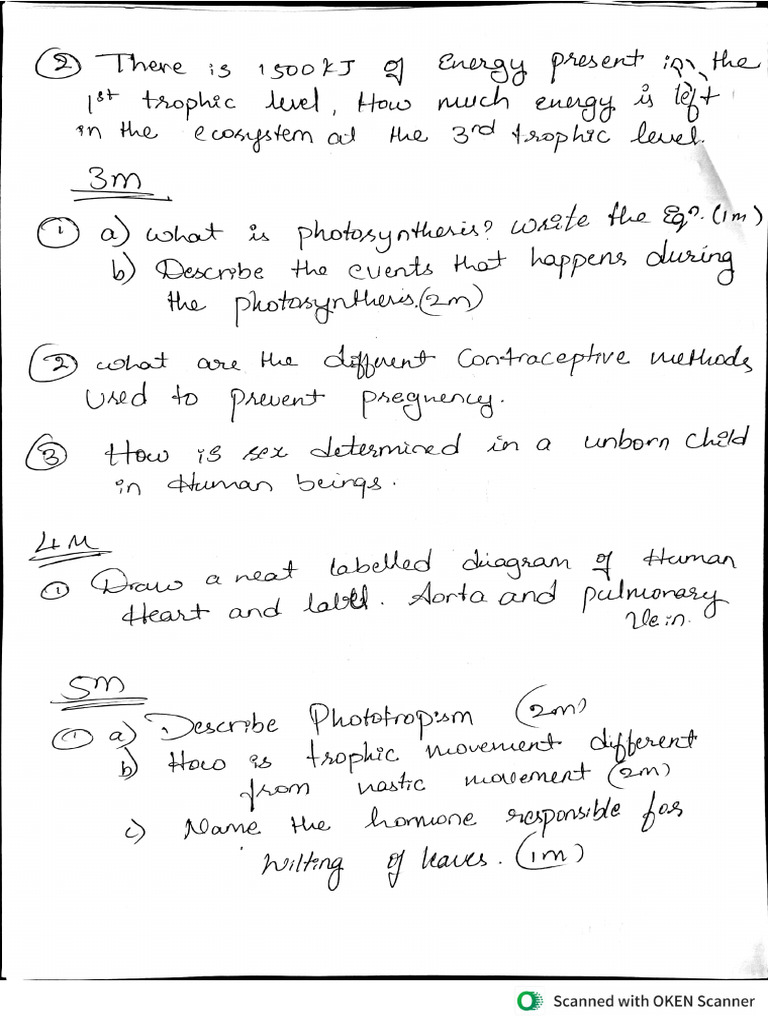 ② There is 1500kJ of Energy present in the
1st trophic level, How much energy is left
in the ecosystem at the 3rd trophic level.
3m
① a) what is photosynthesis? write the Eqn. (1m)
b) Describe the events that happens during
the photosynthesis. (2m)
② what are the different Contraceptive methods
used to prevent pregnency.
③ How is sex determined in a unborn child
in Human beings.
4M
① Draw a neat labelled diagram of Human
Heart and label. Aorta and pulmonary
Vein.
5m
① a) Describe Phototropism (2m)
b) How is trophic movement different
from nastic movement (2m)
c) Name the homone responsible for
wilting of leaves. (1m)
Scanned with OKEN Scanner